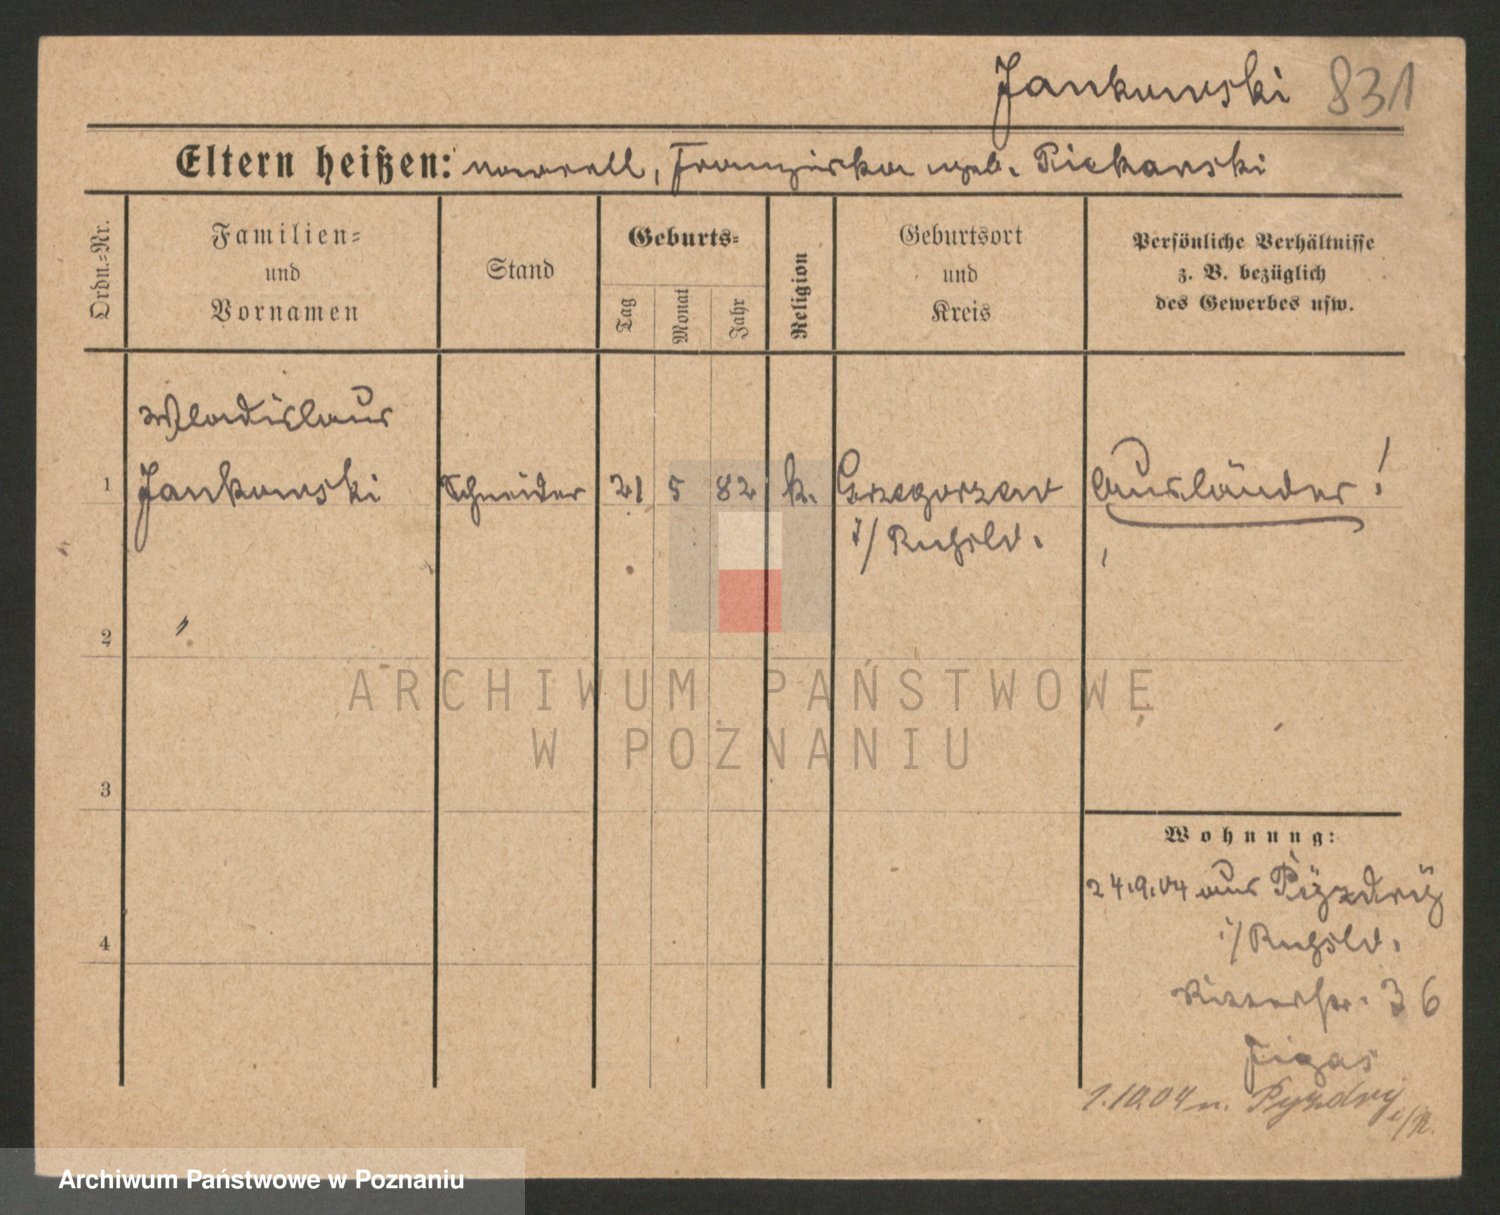 Jankowski 831
Eltern heißen: Franziska geb. Piekarski
Ordn.-Nr.
Familien-
und
Vornamen
Stand
Geburts-
Tag
Monat
Jahr
Religion
Geburtsort
und
Kreis
Persönliche Verhältnisse
z. B. bezüglich
des Gewerbes usw.
Wladislaus
1 Jankowski Schneider 21 5 82 k. Grzegorzew Ausländer!
i/Rußld.
2
3
4
Wohnung:
24.9.04 aus Pÿzdrÿ
i/Rußld.
Ritterstr. 36
Figas
1.10.04 n. Pyzdry
i/R.
ARCHIWUM PAŃSTWOWE
W POZNANIU
Archiwum Państwowe w Poznaniu